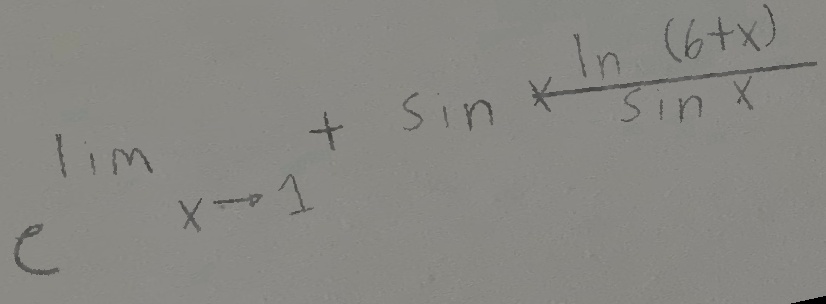 e^{\lim_{x \to 1^+} \sin x \frac{\ln (6+x)}{\sin x}}